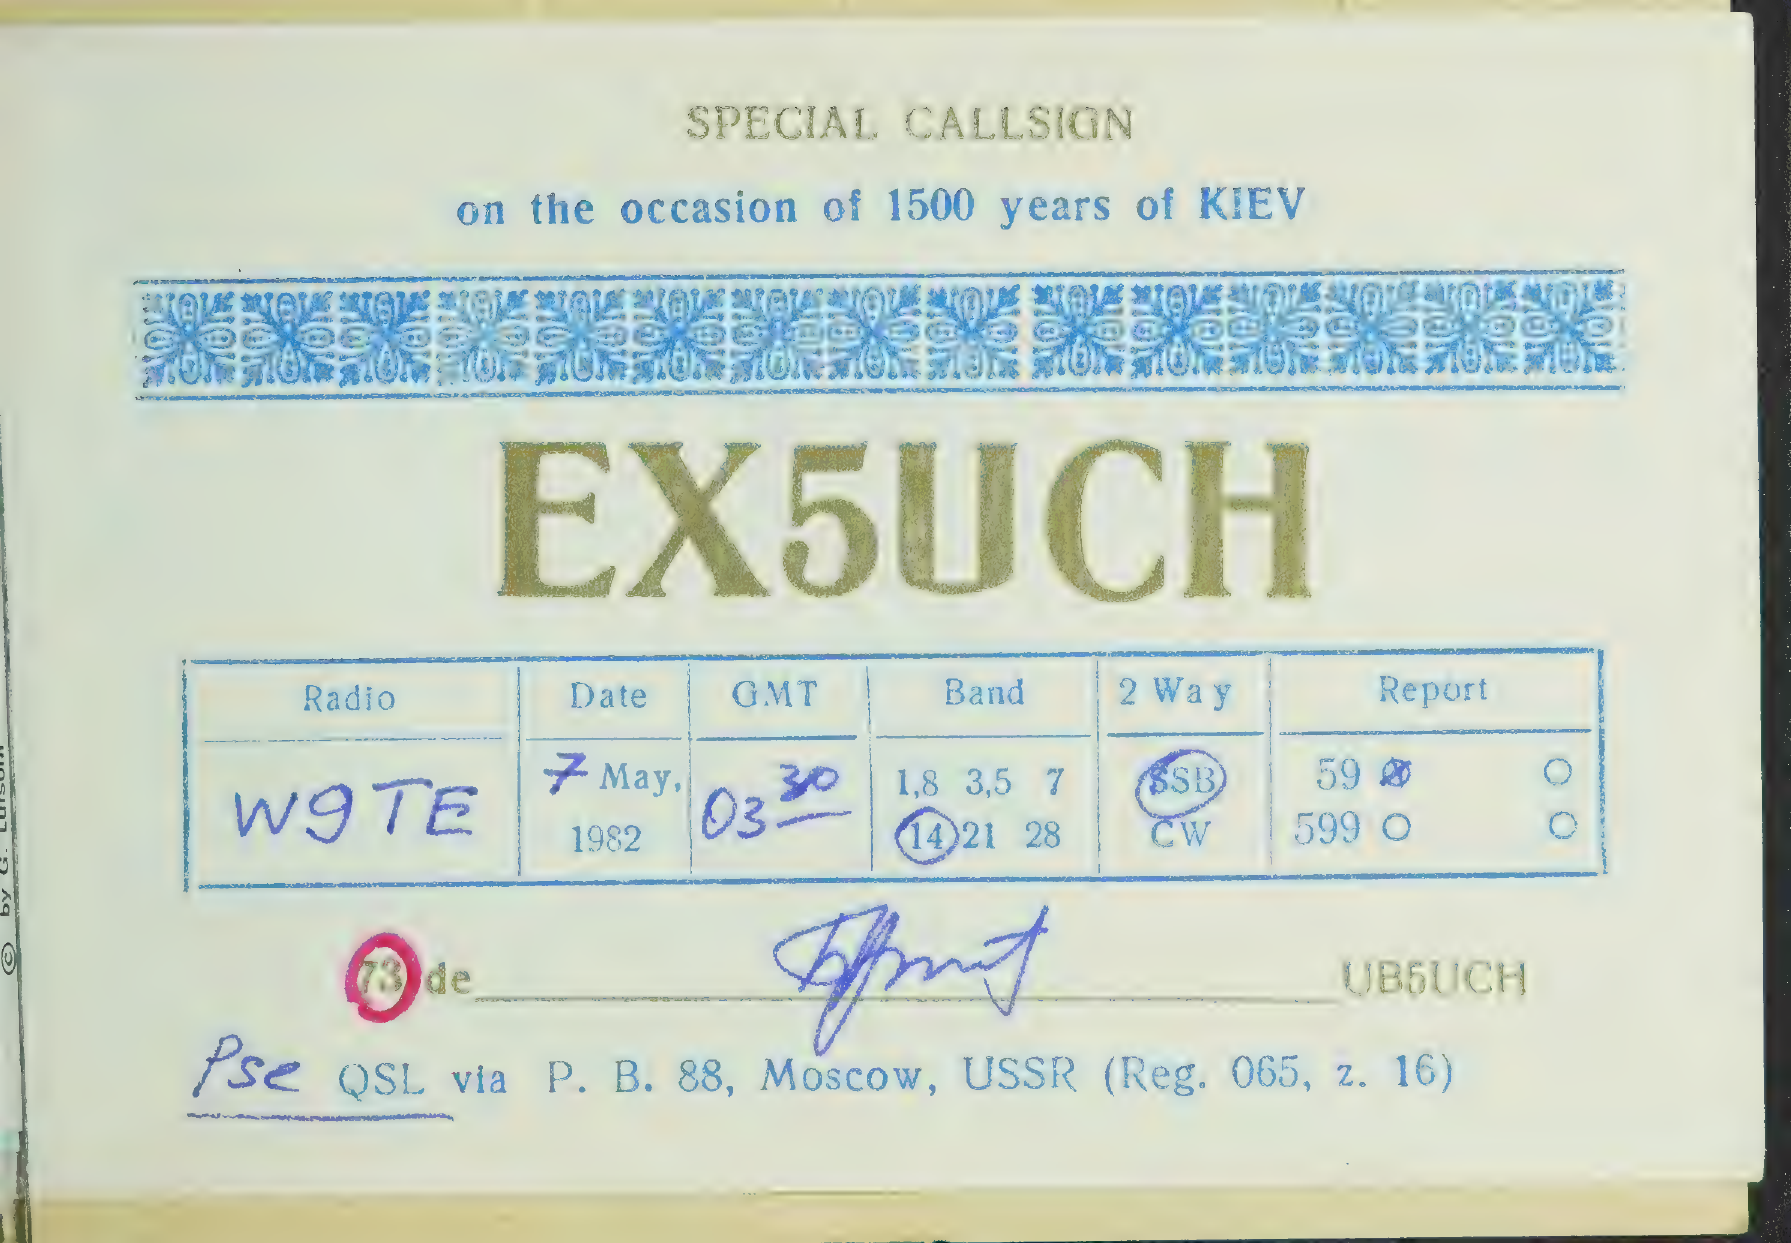 SPECIAL CALLSIGN
on the occasion of 1500 years of KIEV
EX5UCH
Radio Date GMT Band 2 Way Report
W9TE 7 May, 1982 03 30 1,8 3,5 7 14 21 28 SSB CW 59 599
73 de UB5UCH
Pse QSL via P. B. 88, Moscow, USSR (Reg. 065, z. 16)
© by G.